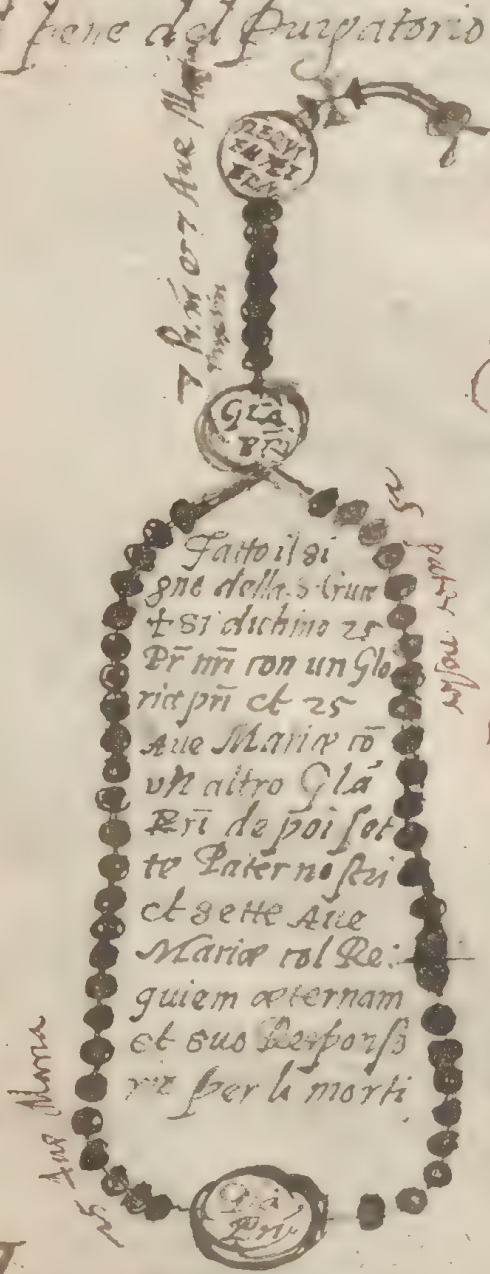 pene del Purgatorio
REQUI
EM ÆT
ERN
7 Pr. ñri et 7 Ave Maria
Glã
Pri
25 pater noster
Fatto il si
gno della S. Cruce
+ Si dichino 25
Pr̃ nrĩ con un Glo
ria pri et 25
Ave Mariæ cõ
un altro Glã
Pri de poi set
te Pater nostri
et sette Ave
Mariæ col Re:
quiem æternam
et suo Responso
per li morti
25 Ave Maria
Glã
Pri